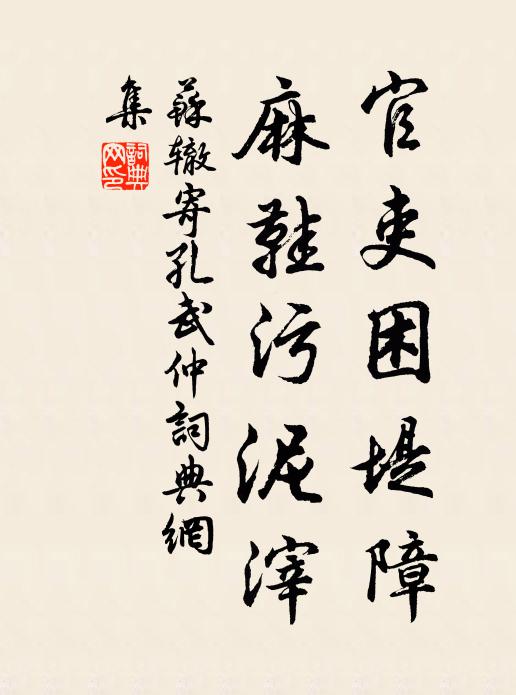 官吏困堤障
麻鞋污泥滓
蘇辙寄孔武仲詞典網
集
詞典網印